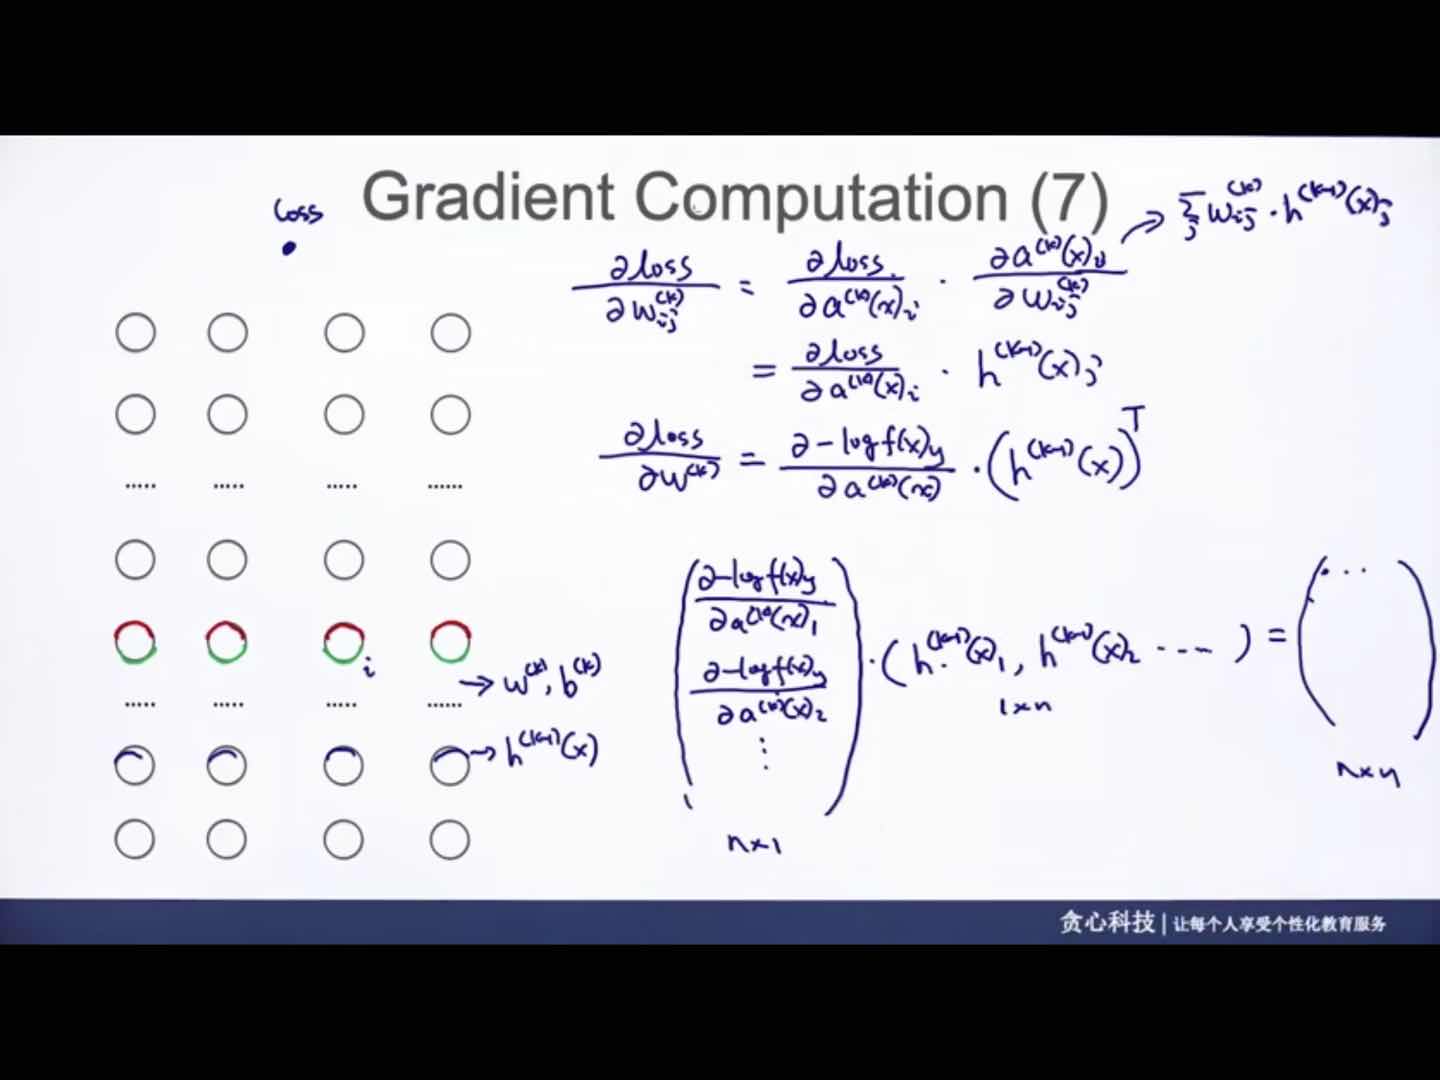 Gradient Computation (7)
loss
∂loss/∂w_ij^(k) = ∂loss/∂a^(k)(x)_i · ∂a^(k)(x)_i/∂w_ij^(k) → Σ_j w_ij^(k) · h^(k-1)(x)_j
= ∂loss/∂a^(k)(x)_i · h^(k-1)(x)_j
∂loss/∂w^(k) = ∂-log f(x)_y/∂a^(k)(x) · (h^(k-1)(x))^T
..... ..... ..... ......
i
→ w^(k), b^(k)
..... ..... ..... ......
→ h^(k-1)(x)
(∂-log f(x)_y/∂a^(k)(x)_1
∂-log f(x)_y/∂a^(k)(x)_2
⋮) · (h^(k-1)(x)_1, h^(k-1)(x)_2 ----) = (...)
n×1
1×n
n×n
贪心科技 | 让每个人享受个性化教育服务